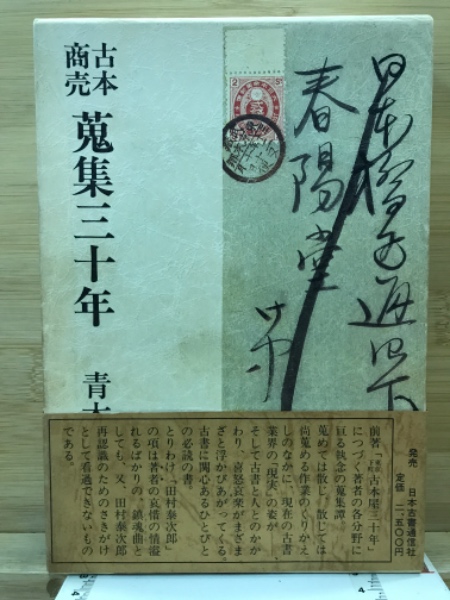 古本
商売
蒐集三十年
青木
日本橋区通四丁
春陽堂
2
発売 日本古書通信社
定価 二、五〇〇円
前著「東京下町古本屋三十年」
につづく著者の各分野に
亘る執念の蒐集譚。
蒐めては散じ、散じては
尚蒐める作業のくりかえ
しのなかに、現在の古書
業界の「現実」の姿が、
そして古書と人とのかか
わり、喜怒哀楽がまざま
ざと浮かびあがってくる。
古書に関心あるひとびと
の必読の書。
とりわけ「田村泰次郎」
の項は著者の哀惜の情溢
れるばかりの、鎮魂曲と
しても、又、田村泰次郎
再認識のためのさきがけ
として看過できないもの
である。